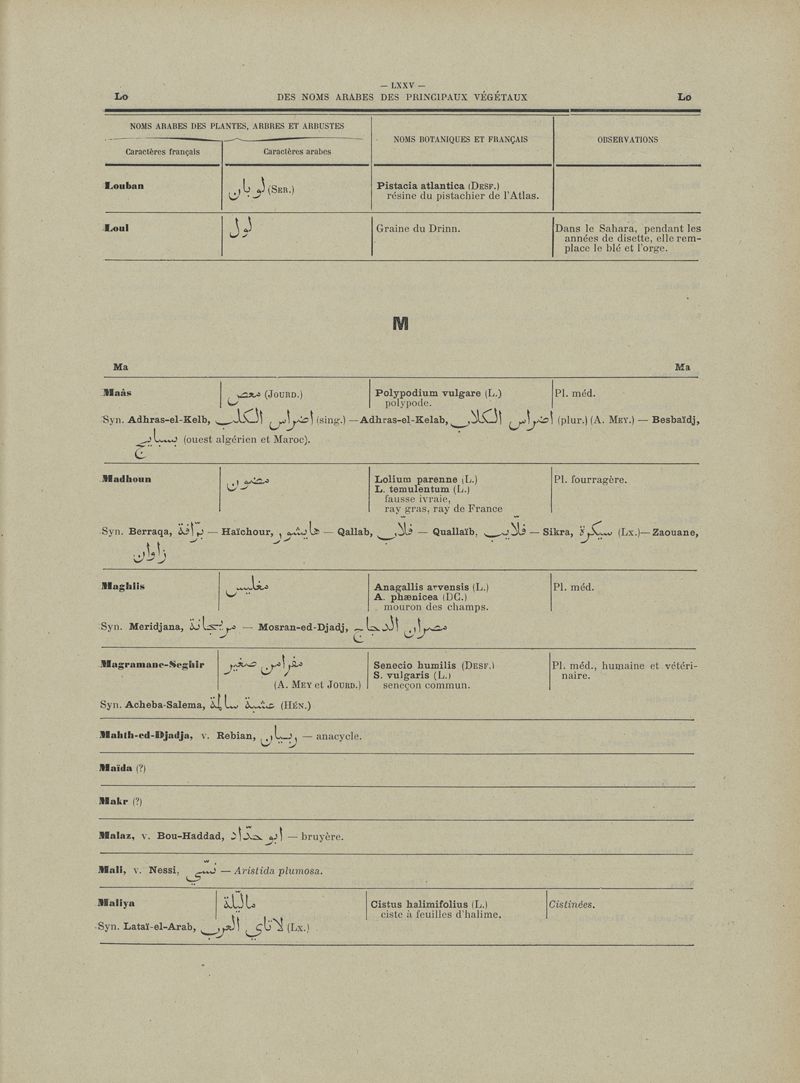 — LXXV —
Lo DES NOMS ARABES DES PRINCIPAUX VÉGÉTAUX Lo
NOMS ARABES DES PLANTES, ARBRES ET ARBUSTES
NOMS BOTANIQUES ET FRANÇAIS
OBSERVATIONS
Caractères français
Caractères arabes
Louban لوبان (SER.) Pistacia atlantica (DESF.)
résine du pistachier de l'Atlas.
Loul لول Graine du Drinn. Dans le Sahara, pendant les
années de disette, elle rem-
place le blé et l'orge.
M
Ma Ma
Maâs (JOURD.) Polypodium vulgare (L.) Pl. méd.
polypode.
Syn. Adhras-el-Kelb, اضراس الكلب (sing.) — Adhras-el-Kelab, اضراس الكلاب (plur.) (A. MEY.) — Besbaïdj,
(ouest algérien et Maroc).
Madhoun Lolium parenne (L.) Pl. fourragère.
L. temulentum (L.)
fausse ivraie,
ray gras, ray de France
Syn. Berraqa, — Haïchour, — Qallab, — Quallaïb, — Sikra, (Lx.) — Zaouane,
Maghlis مغليس Anagallis arvensis (L.) Pl. méd.
A. phœnicea (DC.)
mouron des champs.
Syn. Meridjana, — Mosran-ed-Djadj, مصران الدجاج
Magramane-Seghir Senecio humilis (DESF.) Pl. méd., humaine et vétéri-
S. vulgaris (L.) naire.
(A. MEY et JOURD.) seneçon commun.
Syn. Acheba-Salema, (HÉN.)
Mahth-ed-Djadja, v. Rebian, ربيان — anacycle.
Maïda (?)
Makr (?)
Malaz, v. Bou-Haddad, — bruyère.
Mali, v. Nessi, — Aristida plumosa.
Maliya Cistus halimifolius (L.) Cistinées.
ciste à feuilles d'halime.
Syn. Lataï-el-Arab, (Lx.)